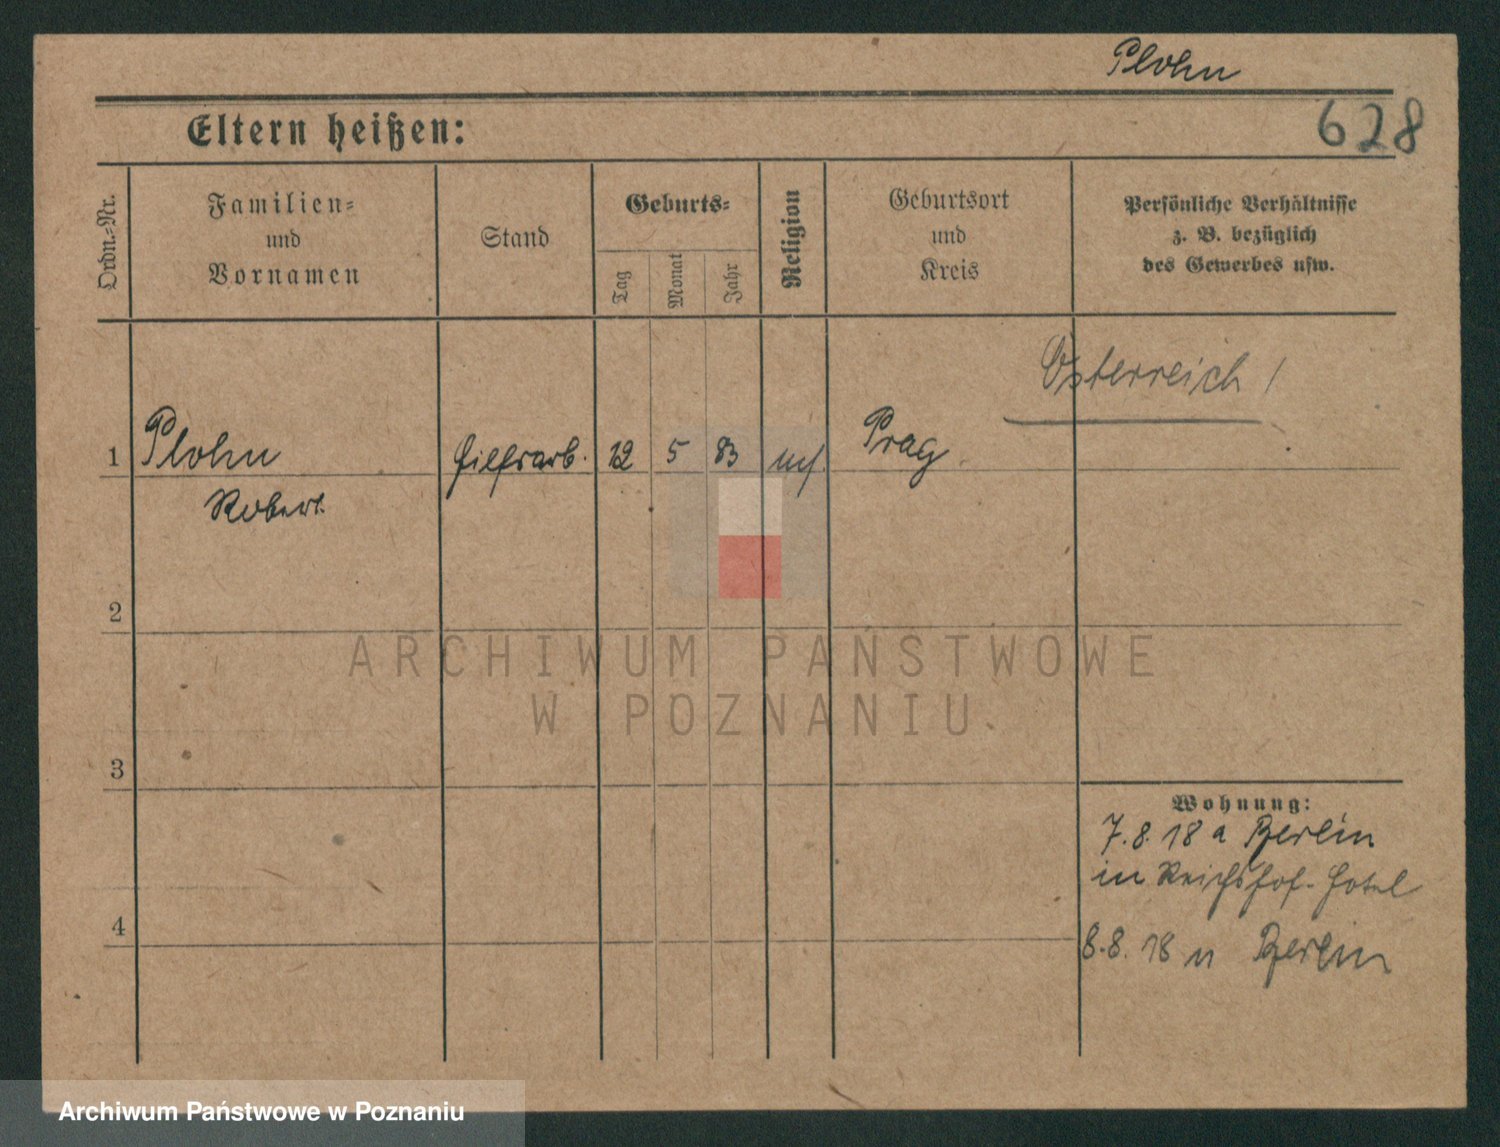 Plohn
628
Eltern heißen:
Ordn.-Nr.
Familien=
und
Vornamen
Stand
Geburts=
Tag
Monat
Jahr
Religion
Geburtsort
und
Kreis
Persönliche Verhältnisse
z. B. bezüglich
des Gewerbes usw.
Österreich!
1 Plohn 12 5 83 Prag
Robert
2
3
4
Wohnung:
7.8.18 a Berlin
in Reichshof-Hotel
8.8.18 n Berlin
ARCHIWUM PAŃSTWOWE
W POZNANIU
Archiwum Państwowe w Poznaniu